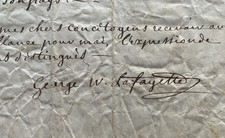 mes chers Concitoyens recevoir av
pour moi, L'expression de
distingués
George W. Lafayette